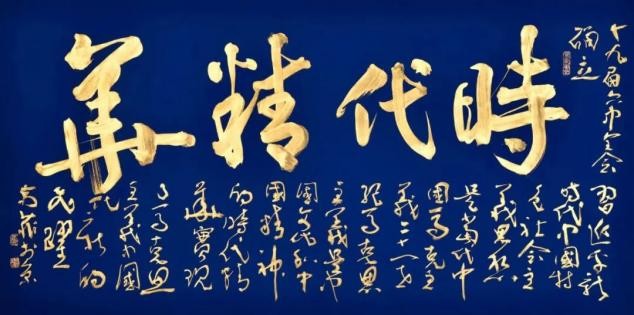 十九届六中全会
确立
時代精華
習近平新
時代中國特
色社会主
義思想
是當代中
國馬克思主
義二十一世
紀馬克思
主義是中
國精神
的時代精
華實現
了馬克思
主義中國
化新的
飛躍